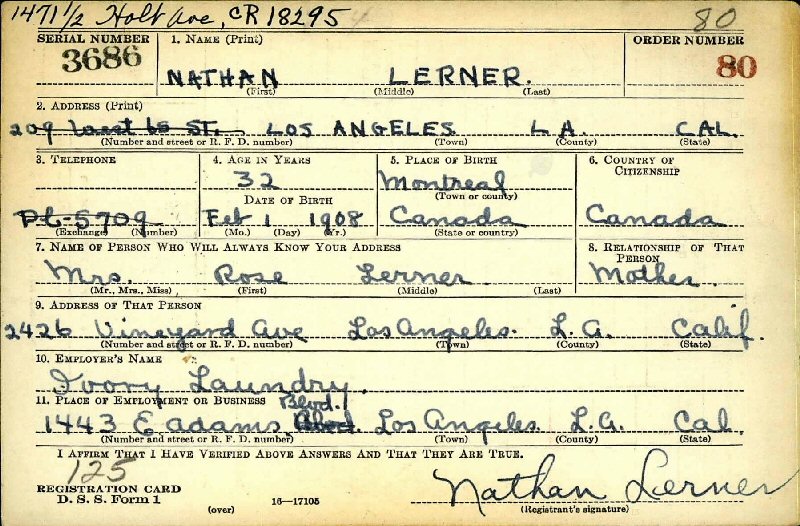 1471 1/2 Holt Ave, CR 18295
80
SERIAL NUMBER 1. NAME (Print) ORDER NUMBER
3686 NATHAN LERNER. 80
(First) (Middle) (Last)
2. ADDRESS (Print)
209 ST. LOS ANGELES L A. CAL.
(Number and street or R. F. D. number) (Town) (County) (State)
3. TELEPHONE 4. AGE IN YEARS 5. PLACE OF BIRTH 6. COUNTRY OF CITIZENSHIP
32 Montreal
DATE OF BIRTH (Town or county)
PL-5709 Feb 1 1908 Canada Canada
(Exchange) (Number) (Mo.) (Day) (Yr.) (State or country)
7. NAME OF PERSON WHO WILL ALWAYS KNOW YOUR ADDRESS 8. RELATIONSHIP OF THAT PERSON
Mrs. Rose Lerner Mother.
(Mr., Mrs., Miss) (First) (Middle) (Last)
9. ADDRESS OF THAT PERSON
2426 Vineyard Ave Los Angeles. L.A. Calif.
(Number and street or R. F. D. number) (Town) (County) (State)
10. EMPLOYER'S NAME
Ivory Laundry.
11. PLACE OF EMPLOYMENT OR BUSINESS Blvd.
1443 E adams. Blvd Los Angeles. L.A. Cal.
(Number and street or R. F. D. number) (Town) (County) (State)
I AFFIRM THAT I HAVE VERIFIED ABOVE ANSWERS AND THAT THEY ARE TRUE.
125
REGISTRATION CARD
D. S. S. Form 1 (over) 16—17105 Nathan Lerner
(Registrant's signature)